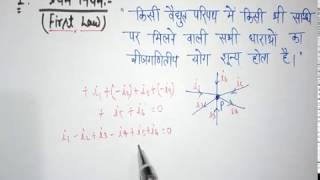 2. प्रथम नियम:-
(First Law)
"किसी वैद्युत परिपथ में किसी भी संधि
पर मिलने वाली सभी धाराओं का
बीजगणितीय योग शून्य होता है।"
+ i₁ + (-i₂) + i₃ + (-i₄)
+ i₅ + i₆ = 0
i₁ - i₂ + i₃ - i₄ + i₅ + i₆ = 0
P